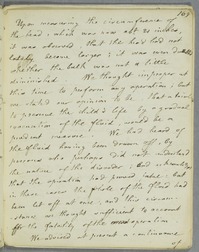 109
Upon measuring the circumference of
the head which was now abt 20 inches,
it was observed that the head had not
lately become larger; it was even doubtful
whether the bulk was not a little
diminished. We thought improper at
this time to perform any operation, but
we stated our opinion to be that a trial
to preserve the child's life by a gradual
evacuation of the fluid, would be a
prudent measure. We had heard of
the fluid having been drawn off, by
persons who perhaps did not understand
the nature of the disorder; and
that the operation had proved fatal: but
in these cases the whole of the fluid had
been let off at once, and this circum-
stance we thought sufficient to account
for the fatality of the operation.
We advised at present a continuance
of